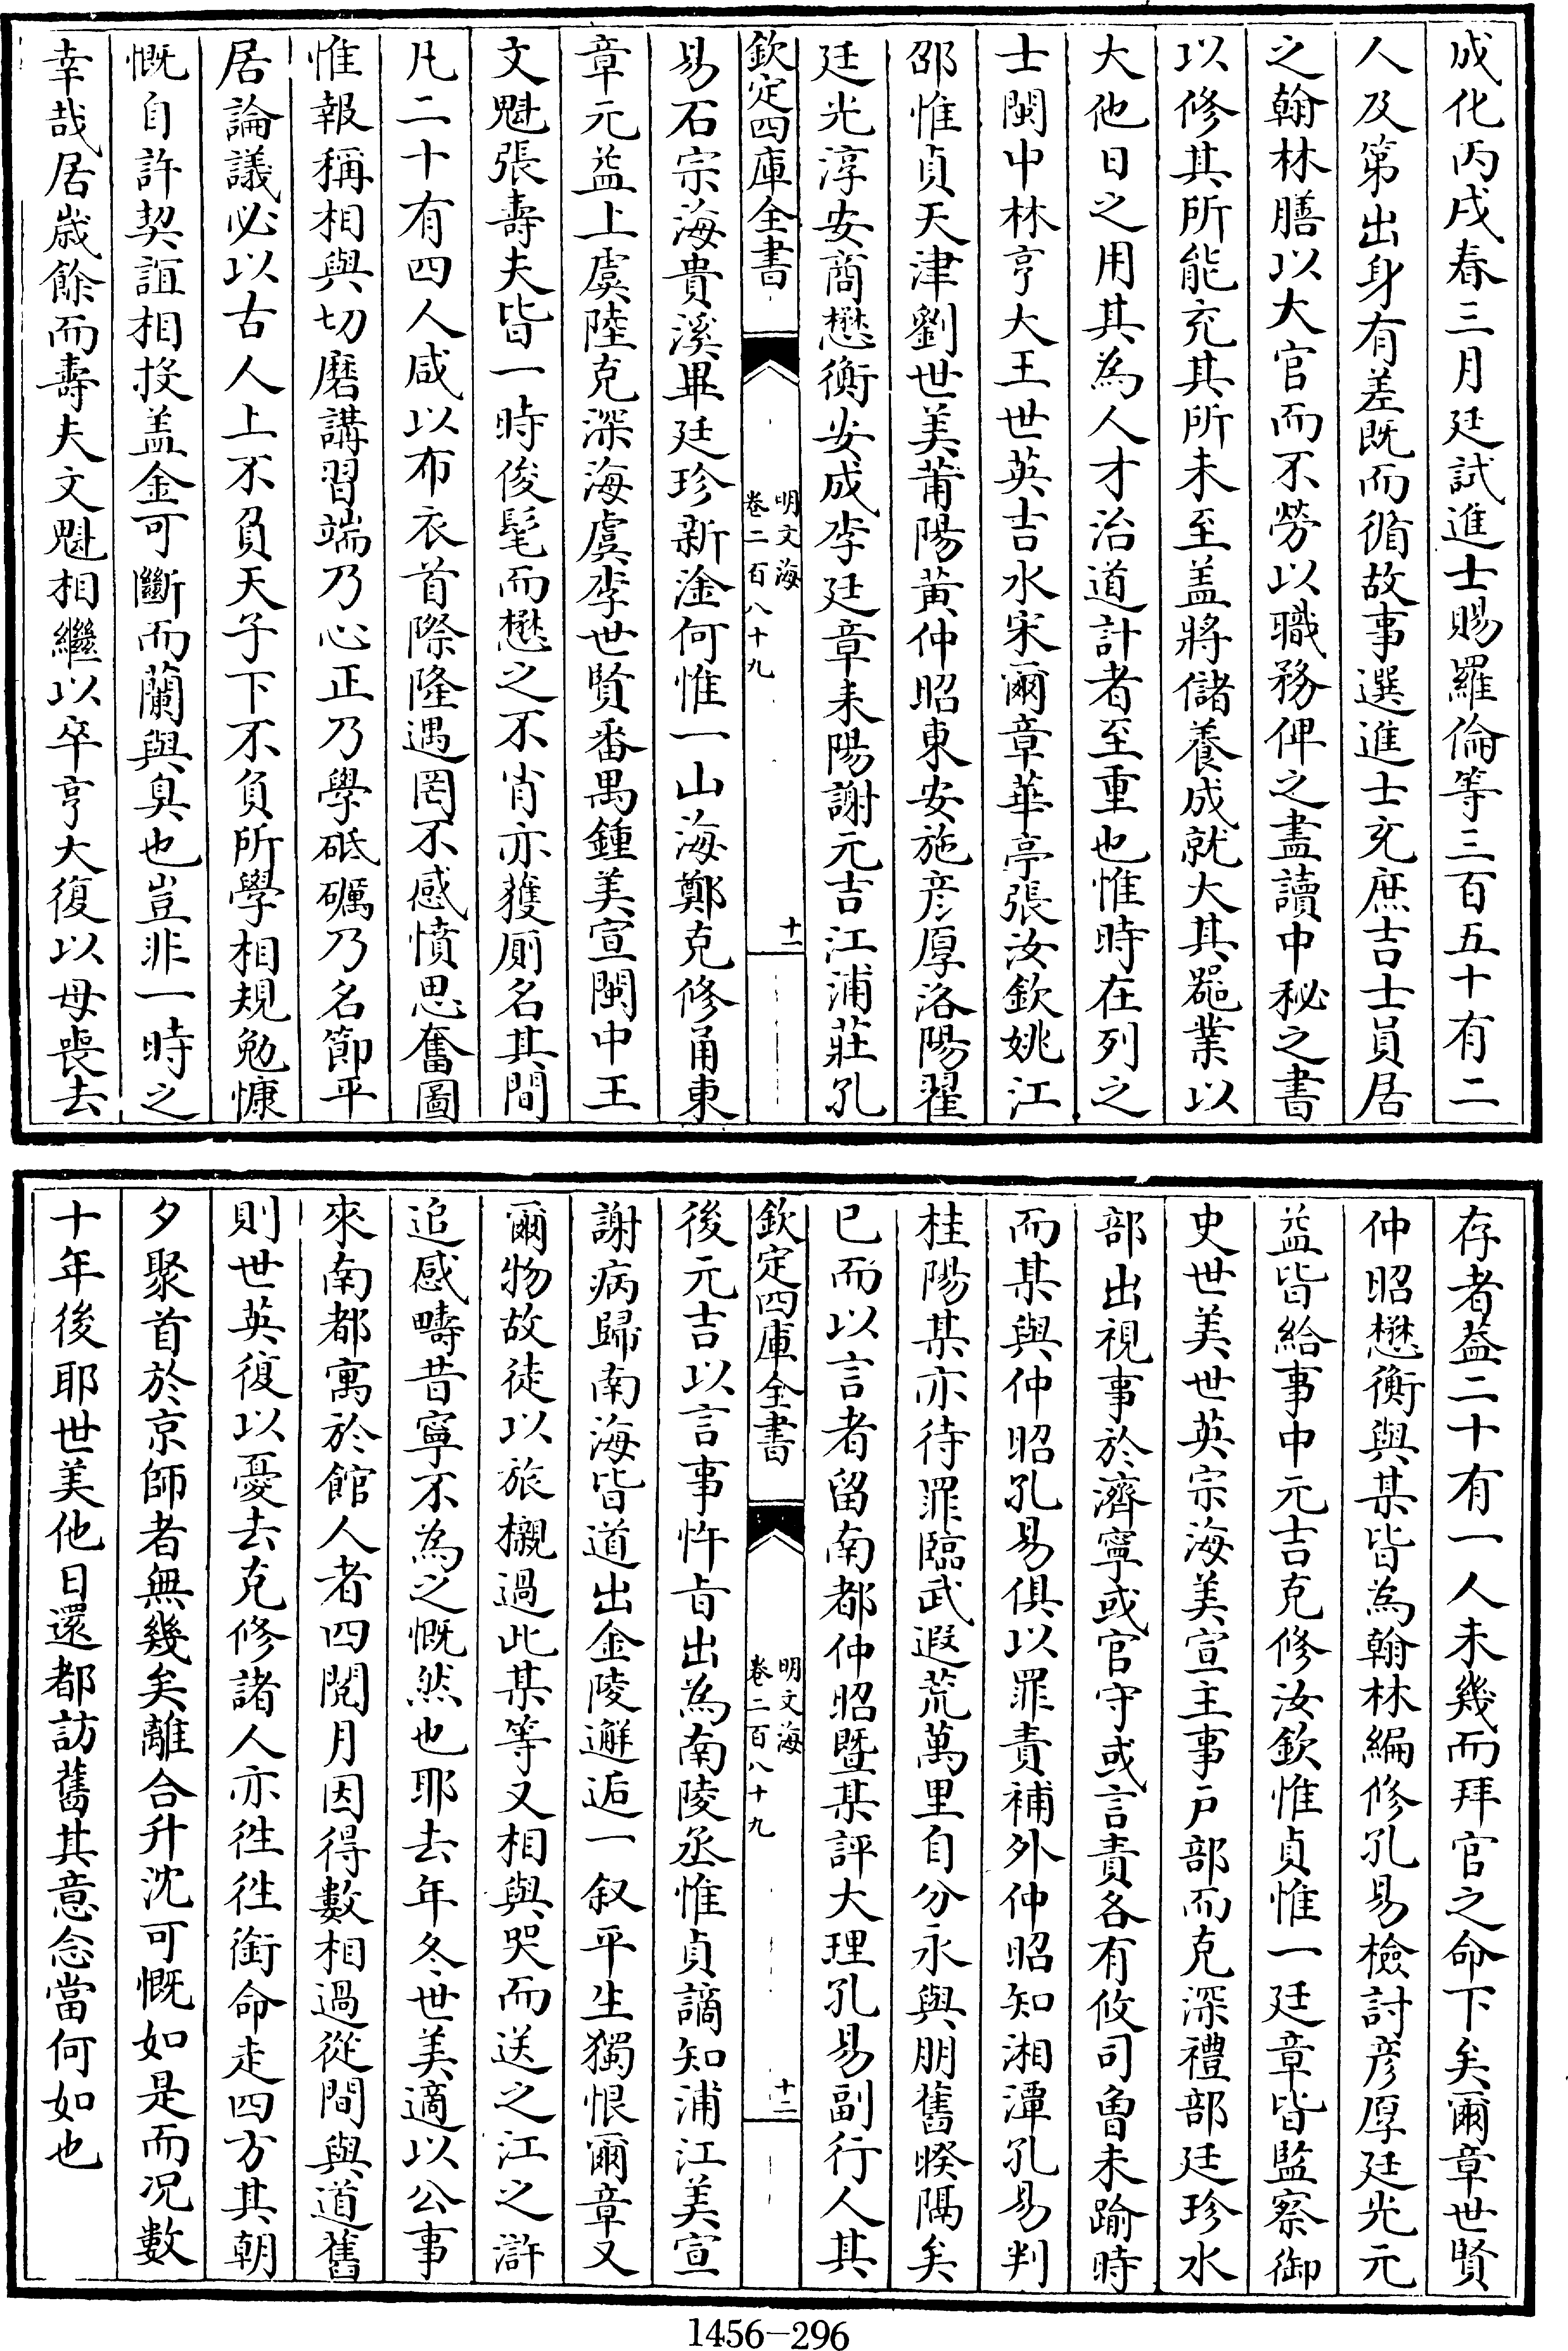 成化丙戌春三月廷試進士賜羅倫等三百五十有二
人及第出身有差既而循故事選進士充庶吉士員居
之翰林膳以大官而不勞以職務俾之盡讀中秘之書
以修其所能充其所未至盖將儲養成就大其器業以
大他日之用其為人才治道計者至重也惟時在列之
士閩中林亨大王世英吉水宋爾章華亭張汝欽姚江
邵惟貞天津劉世美莆陽黃仲昭東安施彦厚洛陽翟
廷光淳安商懋衡安成李廷章耒陽謝元吉江浦莊孔
欽定四庫全書
明文海
卷二百八十九
十一
易石宗海貴溪畢廷珍新淦何惟一山海鄭克修甬東
章元益上虞陸克深海虞李世賢番禺鍾美宣閩中王
文魁張壽夫皆一時俊髦而懋之不肖亦獲廁名其間
凡二十有四人咸以布衣首際隆遇罔不感憤思奮圖
惟報稱相與切磨講習端乃心正乃學砥礪乃名節平
居論議必以古人上不負天子下不負所學相規勉慷
慨自許契誼相投盖金可斷而蘭與臭也豈非一時之
幸哉居嵗餘而壽夫文魁相繼以卒亨大復以母喪去
存者葢二十有一人未幾而拜官之命下矣爾章世賢
仲昭懋衡與某皆為翰林編修孔易檢討彦厚廷光元
益皆給事中元吉克修汝欽惟貞惟一廷章皆監察御
史世美世英宗海美宣主事户部而克深禮部廷珍水
部出視事於濟寧或官守或言責各有攸司曾未踰時
而某與仲昭孔易俱以罪責補外仲昭知湘潭孔易判
桂陽某亦待罪臨武遐荒萬里自分永與朋舊暌隔矣
已而以言者留南都仲昭暨某評大理孔易副行人其
欽定四庫全書
明文海
卷二百八十九
十二
後元吉以言事忤㫖出為南陵丞惟貞謫知浦江美宣
謝病歸南海皆道出金陵邂逅一叙平生獨恨爾章又
爾物故徒以旅櫬過此某等又相與哭而送之江之滸
追感疇昔寧不為之慨然也耶去年冬世美適以公事
來南都寓於館人者四閱月因得數相過從間與道舊
則世英復以憂去克修諸人亦徃徃銜命走四方其朝
夕聚首於京師者無幾矣離合升沈可慨如是而况數
十年後耶世美他日還都訪舊其意念當何如也
1456-296